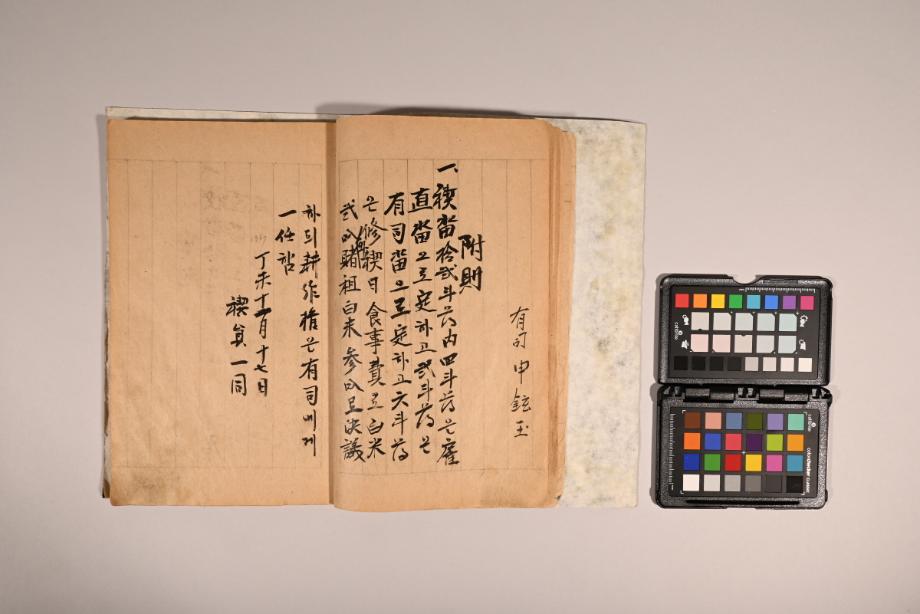 有司 申鉉玉
附則
一、稧畓拾弐斗落內四斗落은雇
直畓으로定하고弐斗落은
有司畓으로定하고六斗落
은修稧日食事費로白米
弐叺賭租白米参叺로決議
하되耕作権은有司에게
一任함
丁未十一月十七日
稧員一同